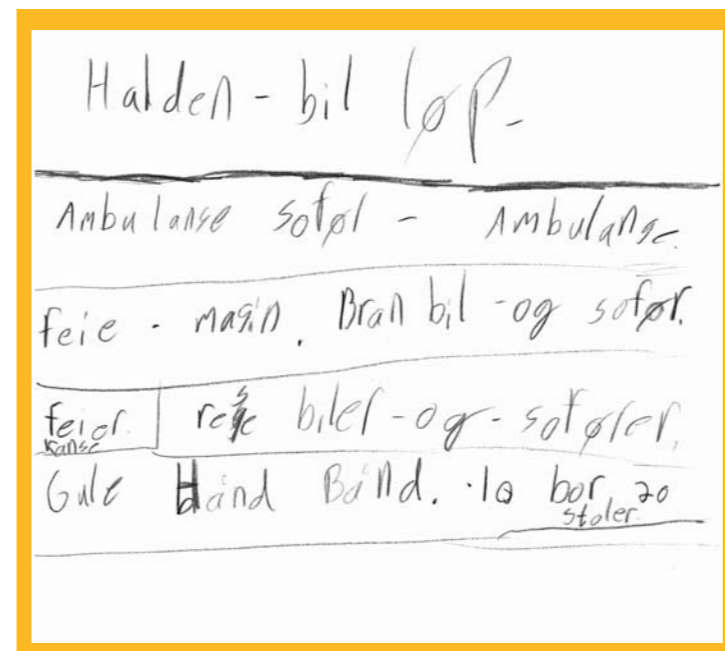 Halden - bil løp -
Ambulanse sofør - Ambulanse.
feie - masin. Bran bil -og sofør.
feier. rese biler -og- soføler.
kanse
Gule Hånd Bånd. 10 bor 20
stoler.